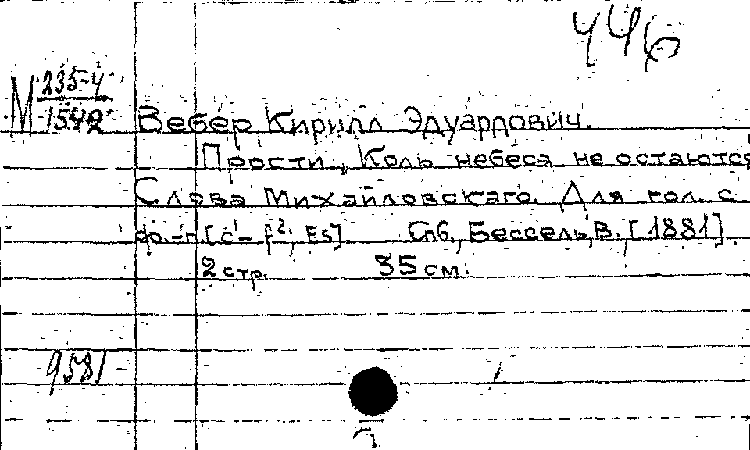 446
М 235-4
1542
Вебер Кирилл Эдуардович.
Прости, Коль небеса не остаются
Слова Михайловскаго. Для гол. с
фо.-п. [c¹ – f²; Es] Спб., Бессель, В. [1881]
2 стр. 35 см.
9581